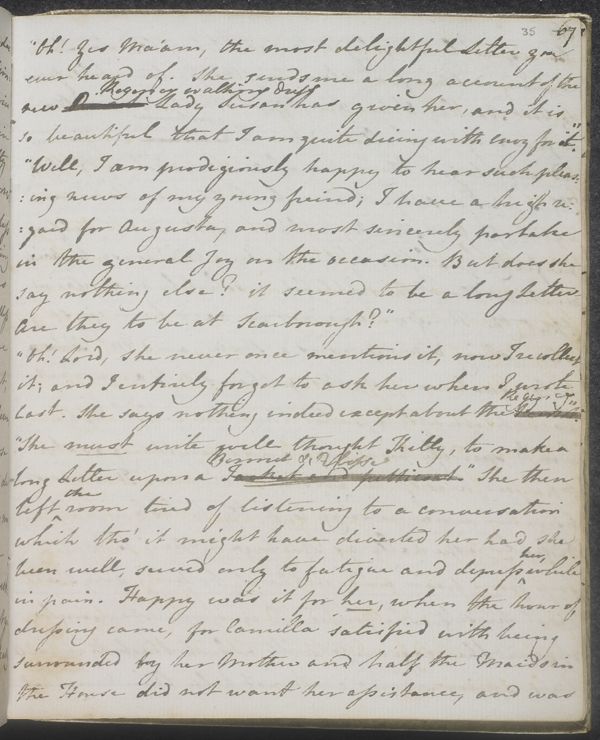 35 67
"Oh! Yes Ma'am, the most delightful Letter you
ever heard of. She sends me a long account of the
new Regency walking dress Lady Susan has given her, and it is
so beautiful that I am quite dieing with envy for it."
"Well, I am prodigiously happy to hear such pleas:
:ing news of my young freind; I have a high re:
:gard for Augusta, and most sincerely partake
in the general Joy on the occasion. But does she
say nothing else? it seemed to be a long Letter
Are they to be at Scarborough?"
"Oh! Lord, she never once mentions it, now I recollect
it; and I entirely forgot to ask her when I wrote
last. She says nothing indeed except about the Regency."
"She must write well thought Kitty, to make a
long Letter upon a Bonnet & Pelisse." She then
left the room tired of listening to a conversation
which tho' it might have diverted her had she
been well, served only to fatigue and depress her, while
in pain. Happy was it for her, when the hour of
dressing came, for Camilla satisfied with being
surrounded by her Mother and half the Maids in
the House did not want her assistance, and was